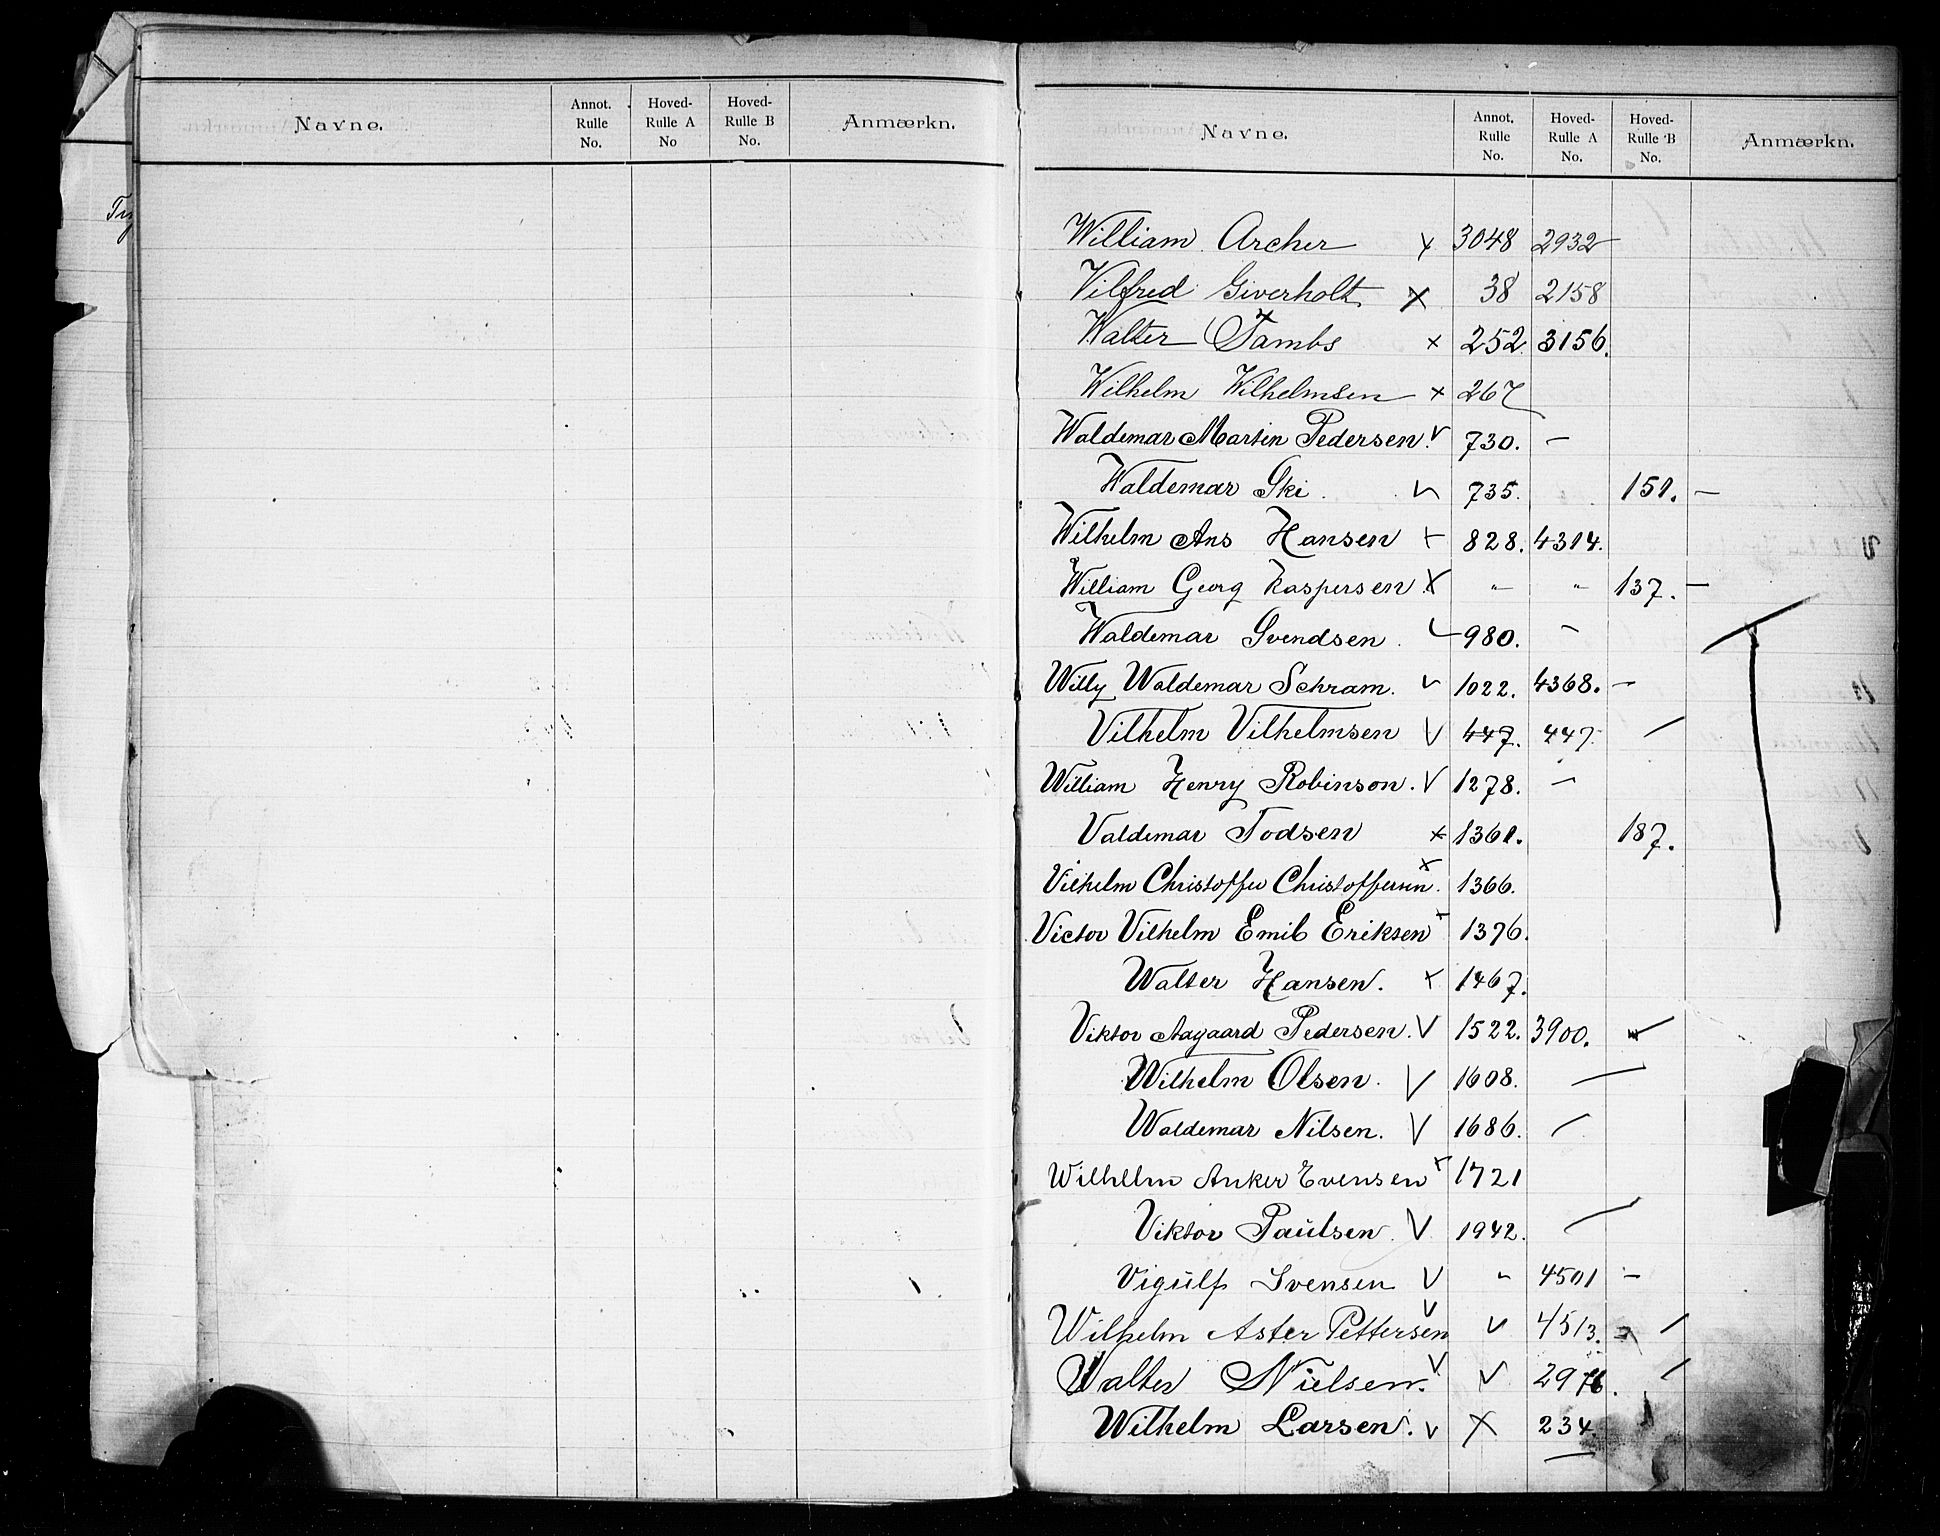 Navne. Annot. Rulle No. Hoved-Rulle A No Hoved-Rulle B No. Anmærkn.
Navne. Annot. Rulle No. Hoved-Rulle A No. Hoved-Rulle B No. Anmærkn.
William Archer x 3048 2932
Vilfred Giverholt x 38 2158
Walter Tambs x 252 3156.
Wilhelm Wilhelmsen x 267
Waldemar Martin Pedersen. v 730. –
Waldemar Ski. v 735. 151. –
Wilhelm Ans Hansen + 828. 4314.
William Georg Kaspersen x " " 137. –
Waldemar Svendsen. v 980. –
Willy Waldemar Schram. v 1022. 4368. –
Vilhelm Vilhelmsen v 447. 447. –
William Henry Robinson. v 1278. –
Valdemar Todsen x 1361. 187.
Vilhelm Christoffer Christoffersen. x 1366.
Victor Vilhelm Emil Eriksen x 1376.
Walter Hansen. x 1467.
Viktor Aagaard Pedersen. v 1522. 3900. –
Wilhelm Olsen. v 1608. –
Waldemar Nilsen. v 1686. –
Wilhelm Anker Evensen x 1721
Viktor Paulsen. v 1942. –
Vigulf Svensen v " 4501 –
Wilhelm Aster Pettersen v v 4513. –
Walter Nielsen. v v 2976. –
Wilhelm Larsen. v x 234.